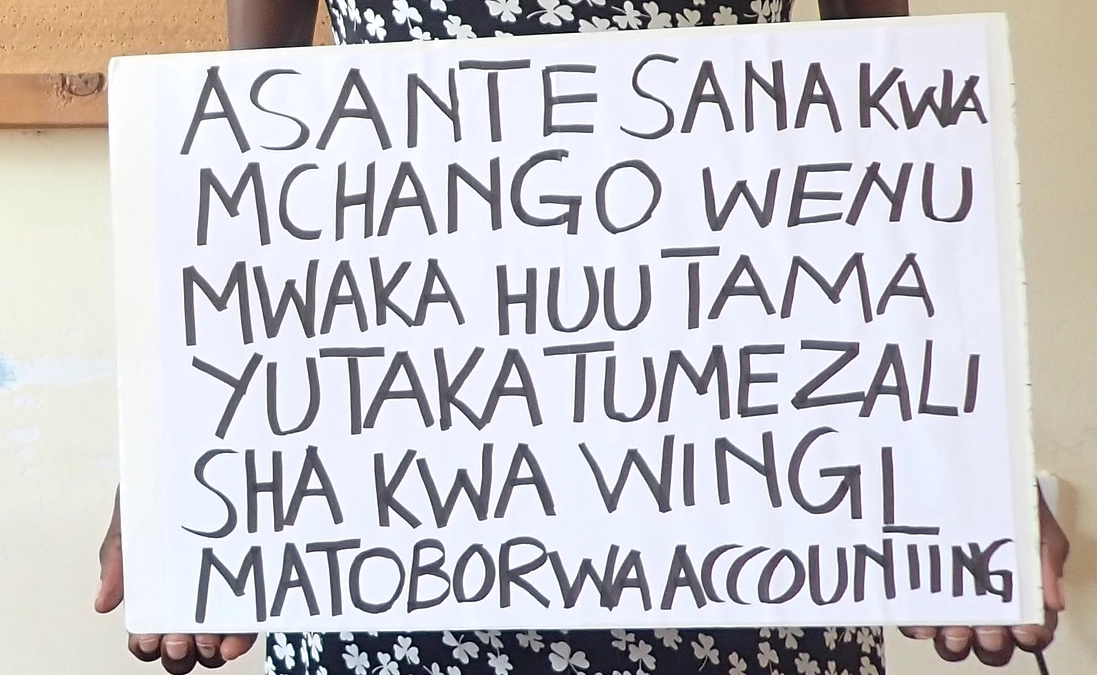 ASANTE SANA KWA
MCHANGO WENU
MWAKA HUU TAMA
YUTAKA TUMEZALI
SHA KWA WINGI
MATOBORWA ACCOUNTIING